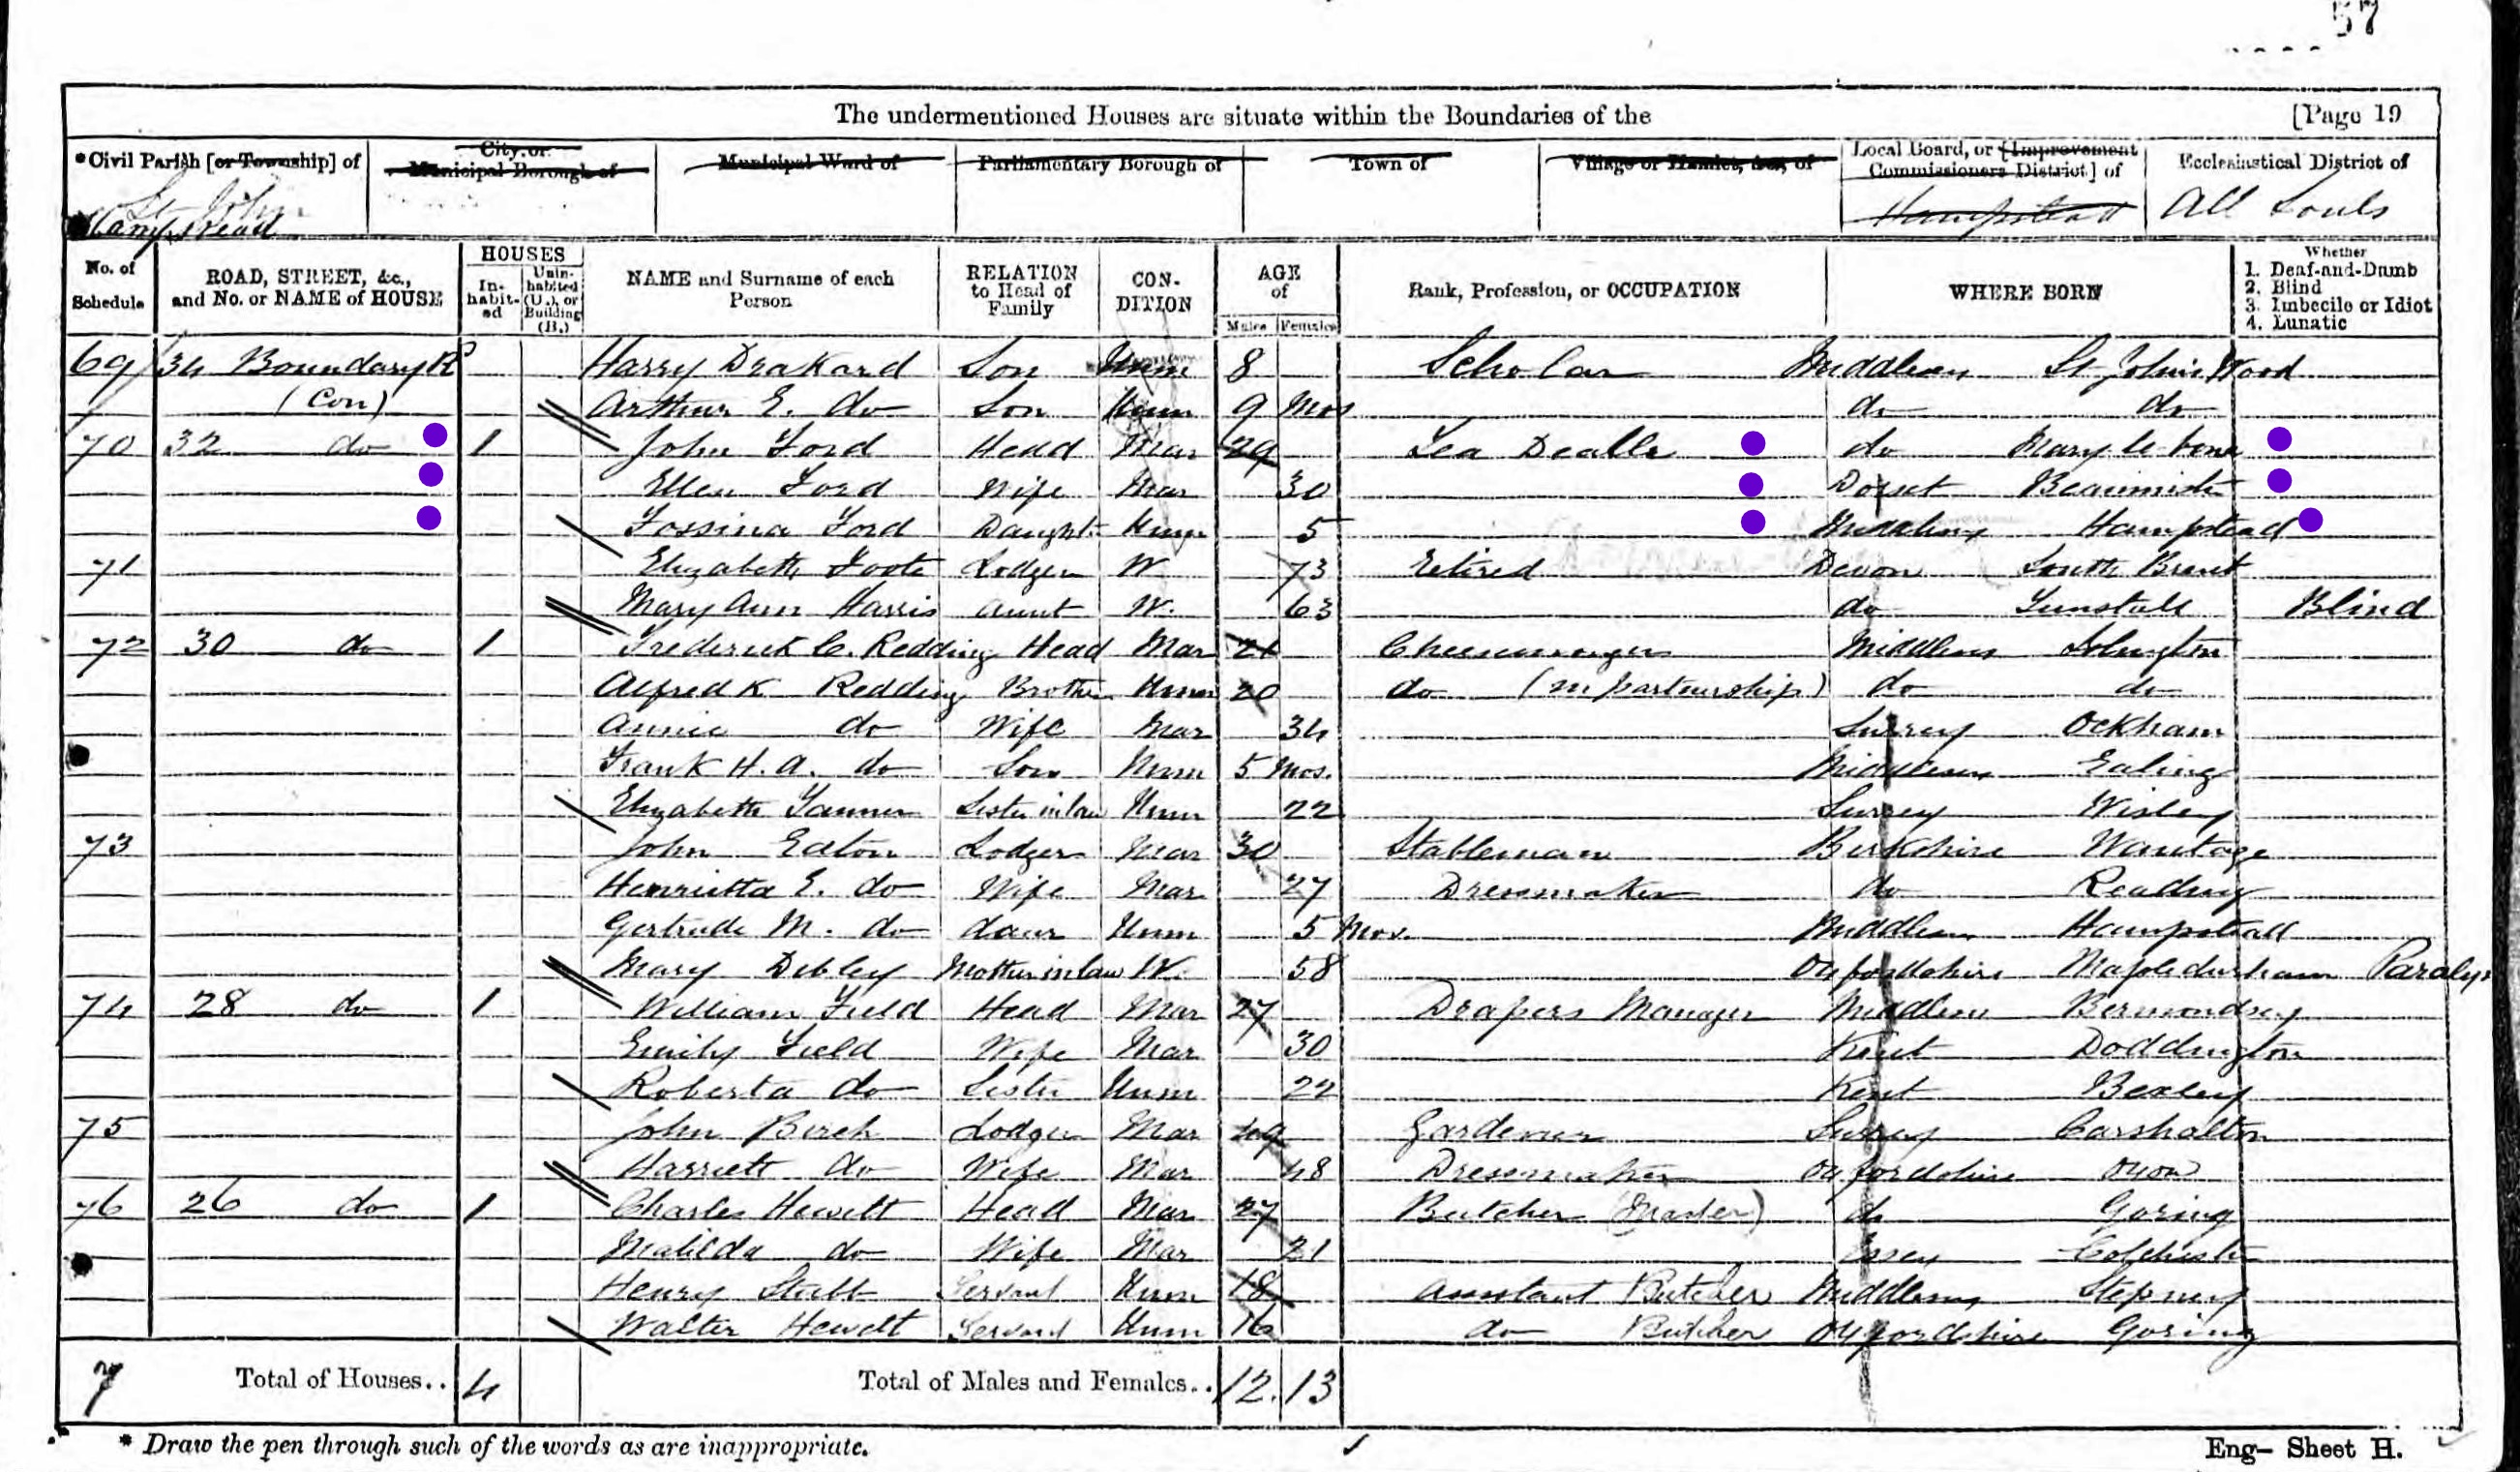 57
The undermentioned Houses are situate within the Boundaries of the [Page 19
*Civil Parish [or Township] of City or Municipal Borough of Municipal Ward of Parliamentary Borough of Town of Village or Hamlet, &c., of Local Board, or [Improvement Commissioners District] of Ecclesiastical District of
St John Hampstead Hampstead All Souls
No. of Schedule ROAD, STREET, &c., and No. or NAME of HOUSE HOUSES Inhabited Uninhabited (U.), or Building (B.) NAME and Surname of each Person RELATION to Head of Family CONDITION AGE of Males Females Rank, Profession, or OCCUPATION WHERE BORN Whether 1. Deaf-and-Dumb 2. Blind 3. Imbecile or Idiot 4. Lunatic
69 34 Boundary Rd Harry Drakard Son Unm 8 Scholar Middlesex St John's Wood
(Con) Arthur E. do Son Unm 9 Mos do do
70 32 do 1 John Ford Head Mar 29 Tea Dealer do Maryle bone
Ellen Ford Wife Mar 30 Dorset Beaminster
Ford Daught. Unm 5 Middlesex Hampstead
71 Elizabeth Foote Lodger W 73 Retired Devon South Brent
Mary Ann Harris Aunt W. 63 do Blind
72 30 do 1 Frederick C. Redding Head Mar 21 Cheesemonger Middlesex Islington
Alfred K Redding Brother Unm 20 do (in partnership) do do
Annie do Wife Mar 34 Surrey Ockham
Frank H. A. do Son Unm 5 Mos. Middlesex Ealing
Elizabeth Tanner Sister in law Unm 22 Surrey Wisley
73 John Eaton Lodger Mar 30 Stableman Berkshire Wantage
Henrietta E. do Wife Mar 27 Dressmaker do Reading
Gertrude M. do daur Unm 5 Mos. Middlesex Hampstead
Mary Dibley Mother in law W. 58 Oxfordshire Mapledurham
74 28 do 1 William Field Head Mar 27 Drapers Manager Middlesex Bermondsey
Emily Field Wife Mar 30 Kent Doddington
Roberta do Sister Unm 22 Kent Bexley
75 John Birch Lodger Mar 49 Gardener Surrey Carshalton
Harriett do Wife Mar 48 Dressmaker Oxfordshire Oxon
76 26 do 1 Charles Hewett Head Mar 27 Butcher (Master) do Goring
Matilda do Wife Mar 21 Essex Colchester
Henry Stubb Servant Unm 18 Assistant Butcher Middlesex Stepney
Walter Hewett Servant Unm 16 do Butcher Oxfordshire Goring
7 Total of Houses.. 4 Total of Males and Females.. 12. 13
* Draw the pen through such of the words as are inappropriate. Eng– Sheet H.